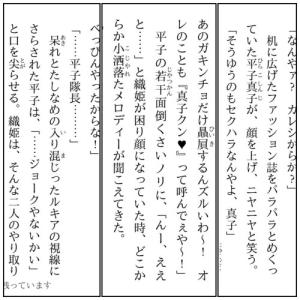 「なんやァ? カレシからか?」
机に広げたファッション誌をパラパラとめくっ
ていた平子真子が、顔を上げ、ニヤニヤと笑う。
「そうゆうのもセクハラなんやよ、真子」
あのガキンチョだけ贔屓するんズルいわ～! オ
レのことも『真子クン♥』って呼んでぇや～!」
平子の若干面倒くさいノリに、「んー、ええ
と……」と織姫が困り顔になっていた時、どこか
らか小洒落たメロディーが聞こえてきた。
べっぴんやったからな!」
「……平子隊長……」
呆れとたしなめの入り混じったルキアの視線に
さらされた平子は、「…ジョークやないかい」
と口を尖らせる。織姫は、そんな二人のやり取り
残っています